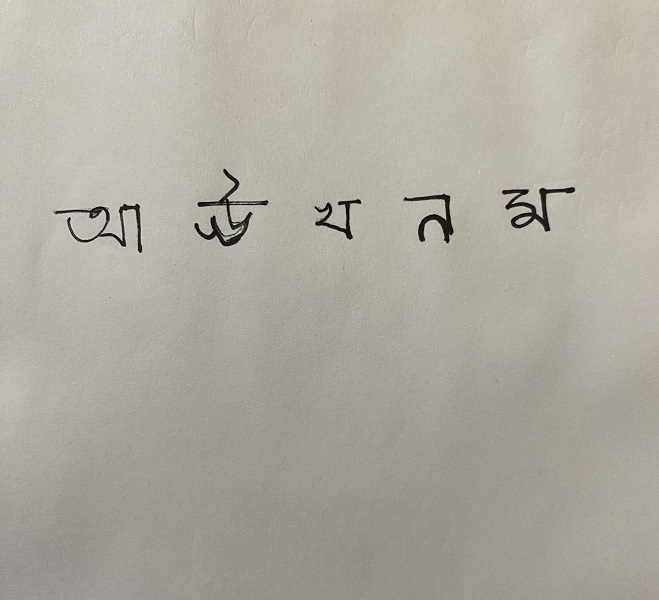 আ ঊ খ ন ম